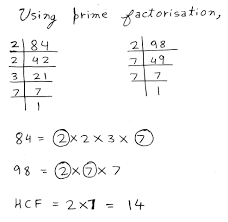 Using prime factorisation,
2 | 84
2 | 42
3 | 21
7 | 7
1
2 | 98
7 | 49
7 | 7
1
84 = 2 × 2 × 3 × 7
98 = 2 × 7 × 7
HCF = 2 × 7 = 14